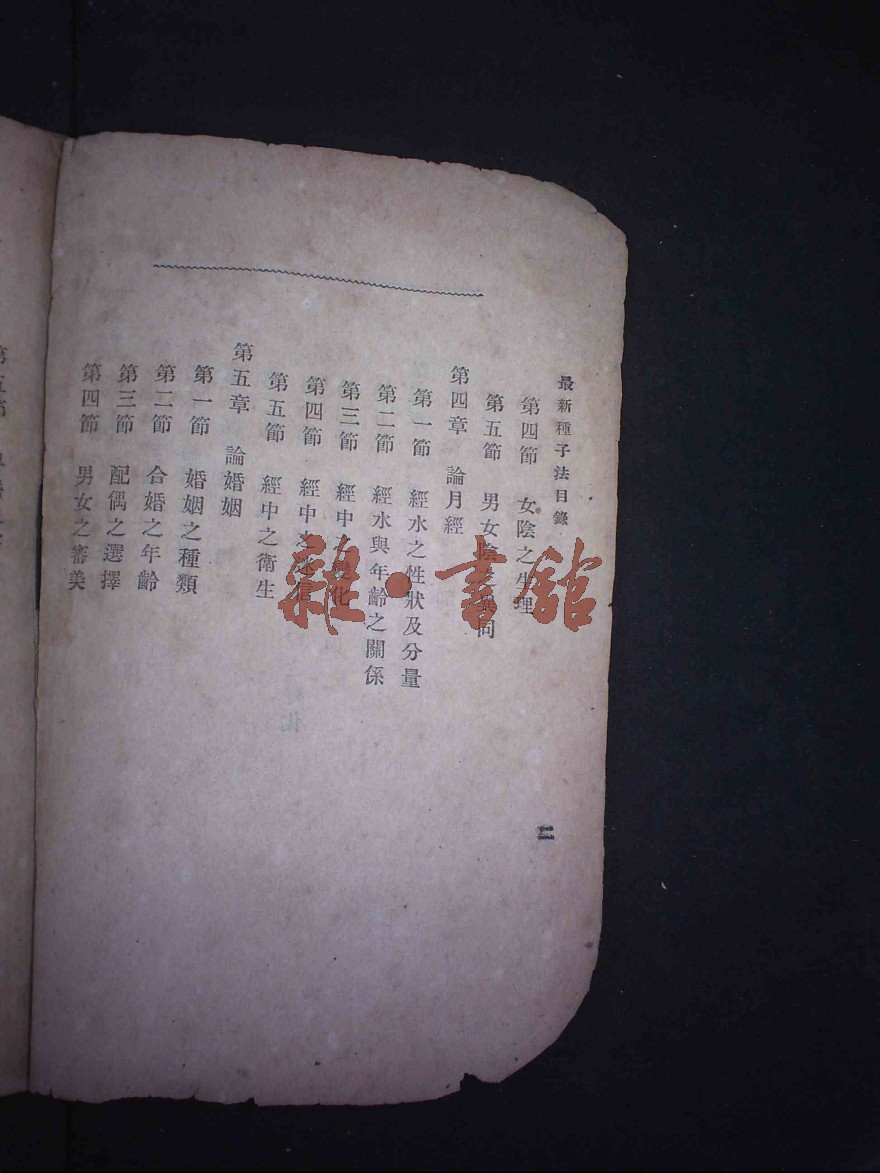 最新種子法目錄
第四節 女陰之生理
第五節 男女陰之異同
第四章 論月經
第一節 經水之性狀及分量
第二節 經水與年齡之關係
第三節 經中之變化
第四節 經中之迷信
第五節 經中之衛生
第五章 論婚姻
第一節 婚姻之種類
第二節 合婚之年齡
第三節 配偶之選擇
第四節 男女之審美
二
雜·書館